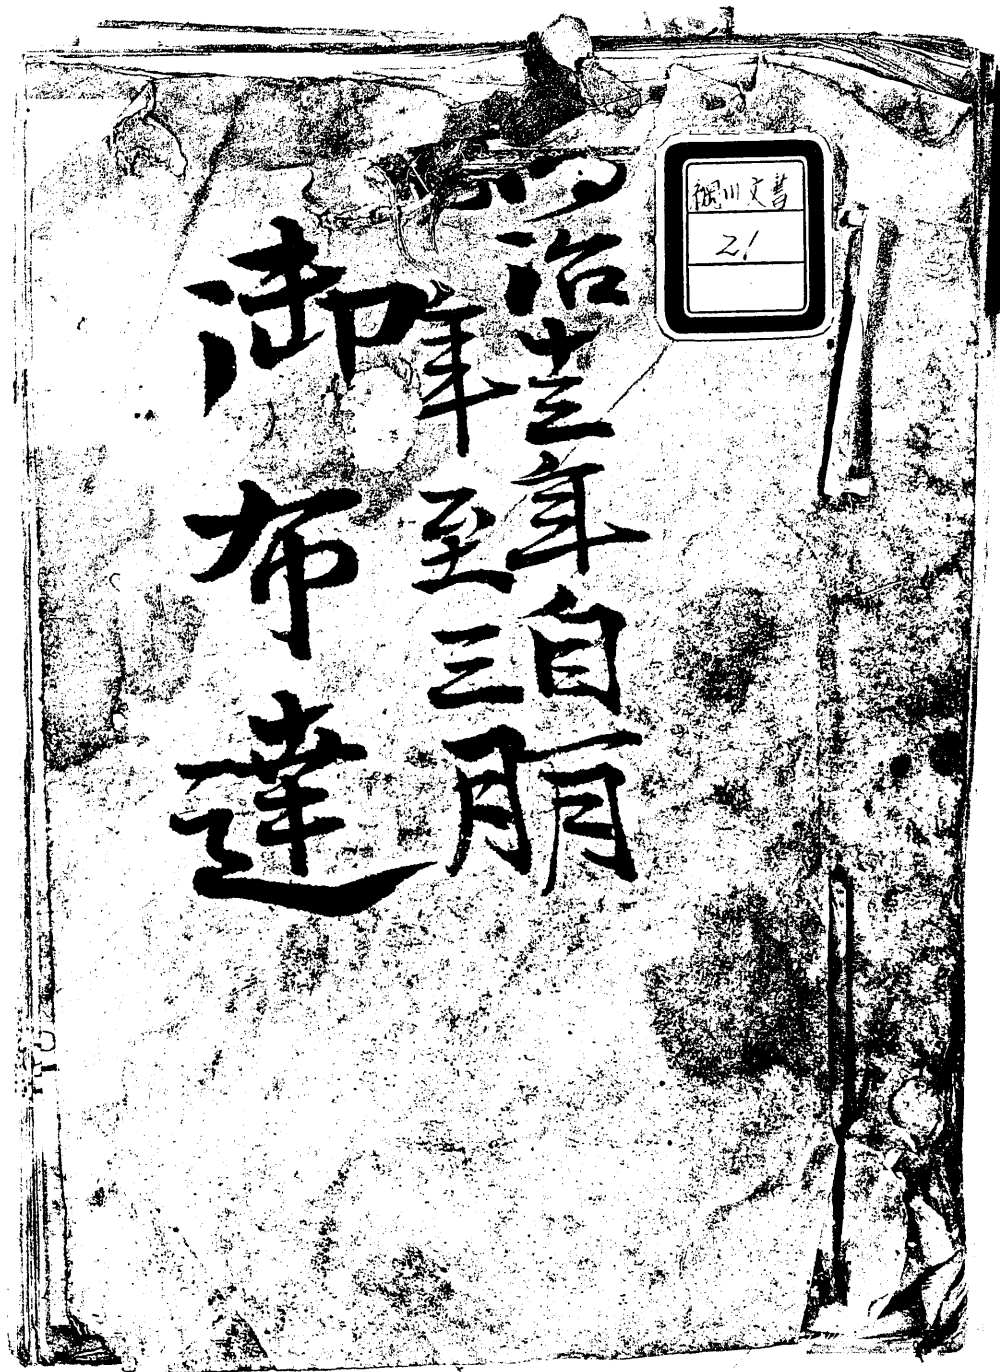 川文書
21
明治十三年自一月
年至三月
御布達